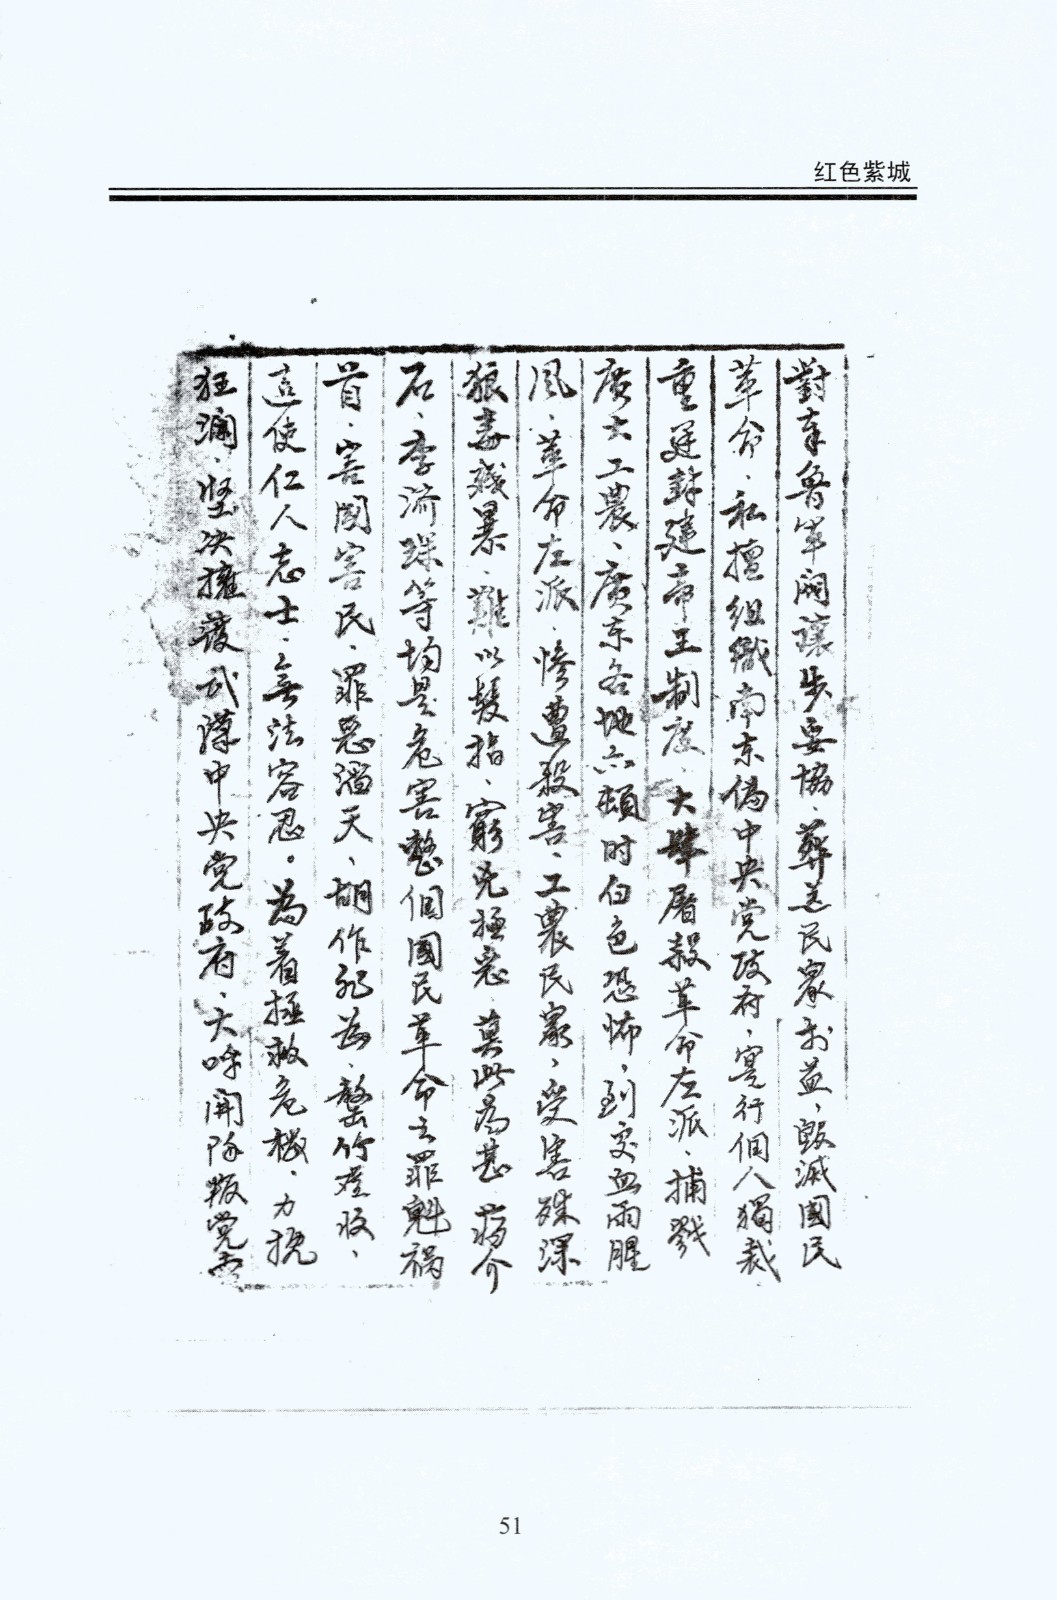 红色紫城
對奉魯軍阀讓步妥協、葬送民众利益、毀滅國民
革命、私擅组織南京偽中央党政府、寔行個人獨裁
重建封建帝王制度、大肆屠殺革命左派、捕戮
廣大工農、廣东各地六頓时白色恐怖、到处血雨腥
风、革命左派、惨遭殺害、工農民众、受害殊深
狼毒殘暴、難以髮指、窮兇極惡、莫此為甚、蒋介
石、李济琛等均是危害整個國民革命之罪魁祸
首、害國害民、罪恶滔天、胡作非為、罄竹难收、
這使仁人志士、無法容忍。為着拯救危機、力挽
狂澜、坚决擁護武漢中央党政府、大呼開除叛党
51